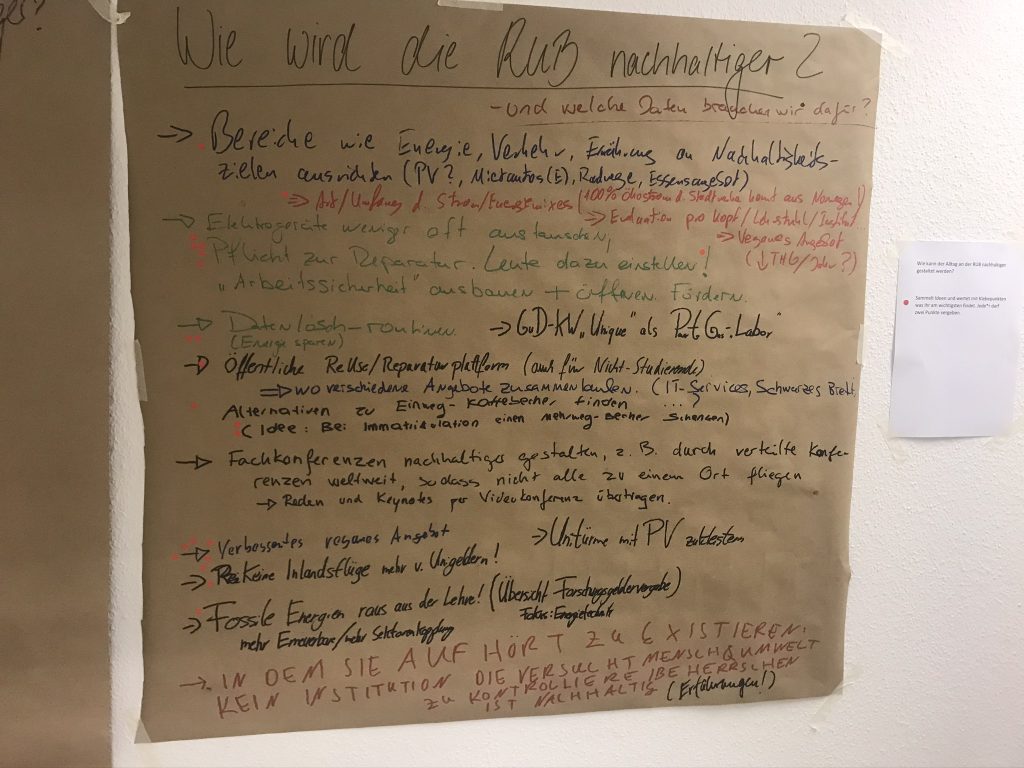 Wie wird die RUB nachhaltiger?
- und welche Daten brauchen wir dafür?
→ Bereiche wie Energie, Verkehr, Ernährung an Nachhaltigkeits-
zielen ausrichten (PV?, Mietautos(E), Radwege, Essensangebot)
→ Art/Umfang d. Strom/Energiemixes (100% Ökostrom d. Stadtwerke kommt aus Norwegen!)
→ Evaluation pro Kopf/Lehrstuhl/Institut
→ Veganes Angebot
(↓THG/Jahr?)
→ Elektrogeräte weniger oft austauschen,
Pflicht zur Reparatur. Leute dazu einstellen!
"Arbeitssicherheit" ausbauen + öffnen. Fördern.
→ Datenlösch-routinen
(Energie sparen)
→ GuD-KW „Unique" als
→ Öffentliche ReUse/Reparaturplattform (auch für Nicht-Studierende)
⇒ wo verschiedene Angebote zusammenlaufen. (IT-Services, Schwarzes Brett,
...)
Alternativen zu Einweg-Kaffebecher finden
(Idee: Bei Immatrikulation einen mehrweg-becher schenken)
→ Fachkonferenzen nachhaltiger gestalten, z.B. durch verteilte Konfe-
renzen weltweit, sodass nicht alle zu einem Ort fliegen
→ Reden und Keynotes per Videokonferenz übertragen.
→ Verbessertes veganes Angebot
→ Unitürme mit PV
→ Keine Inlandsflüge mehr v. Unigeldern!
→ Fossile Energien raus aus der Lehre! (Übersicht Forschungsgeldervergabe)
Fokus: Energietechnik
mehr Erneuerbare/mehr Sektorenkopplung
→ IN DEM SIE AUFHÖRT ZU EXISTIEREN.
KEIN INSTITUTION DIE VERSUCHT MENSCH & UMWELT
ZU KONTROLLIERE /BEHERRSCHEN
IST NACHHALTIG
Wie kann der Alltag an der RUB nachhaltiger
gestaltet werden?
Sammelt Ideen und wertet mit Klebepunkten
was ihr am wichtigsten findet. Jede*r darf
zwei Punkte vergeben.